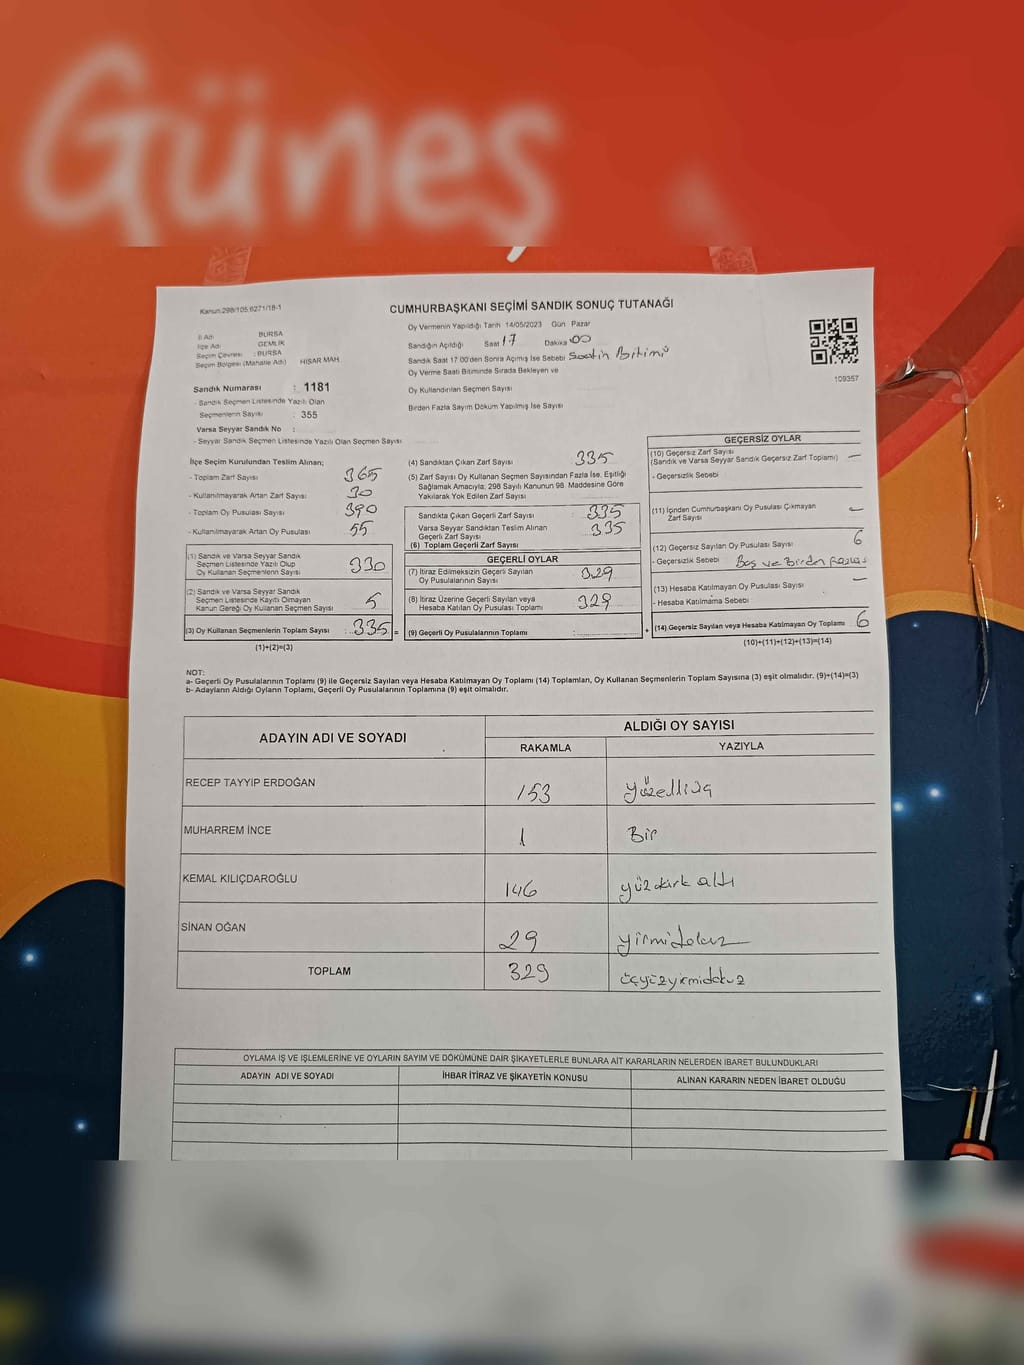 Güneş
Kanun:298/105;6271/18-1
CUMHURBAŞKANI SEÇİMİ SANDIK SONUÇ TUTANAĞI
İl Adı BURSA
İlçe Adı GEMLİK
Seçim Çevresi : BURSA
Seçim Bölgesi (Mahalle Adı) HİSAR MAH.
Sandık Numarası : 1181
- Sandık Seçmen Listesinde Yazılı Olan
Seçmenlerin Sayısı : 355
Varsa Seyyar Sandık No :
- Seyyar Sandık Seçmen Listesinde Yazılı Olan Seçmen Sayısı
Oy Vermenin Yapıldığı Tarih 14/05/2023 Gün Pazar
Sandığın Açıldığı Saat 17 Dakika 00
Sandık Saat 17:00'den Sonra Açılmış İse Sebebi Saatin Bitimi
Oy Verme Saati Bitiminde Sırada Bekleyen ve
Oy Kullandırılan Seçmen Sayısı
Birden Fazla Sayım Döküm Yapılmış İse Sayısı
109357
İlçe Seçim Kurulundan Teslim Alınan;
- Toplam Zarf Sayısı 365
- Kullanılmayarak Artan Zarf Sayısı 30
- Toplam Oy Pusulası Sayısı 390
- Kullanılmayarak Artan Oy Pusulası 55
(1) Sandık ve Varsa Seyyar Sandık
Seçmen Listesinde Yazılı Olup
Oy Kullanan Seçmenlerin Sayısı 330
(2) Sandık ve Varsa Seyyar Sandık
Seçmen Listesinde Kayıtlı Olmayan
Kanun Gereği Oy Kullanan Seçmen Sayısı 5
(3) Oy Kullanan Seçmenlerin Toplam Sayısı : 335 =
(1)+(2)=(3)
(4) Sandıktan Çıkan Zarf Sayısı 335
(5) Zarf Sayısı Oy Kullanan Seçmen Sayısından Fazla İse, Eşitliği
Sağlamak Amacıyla; 298 Sayılı Kanunun 98. Maddesine Göre
Yakılarak Yok Edilen Zarf Sayısı
Sandıkta Çıkan Geçerli Zarf Sayısı : 335
Varsa Seyyar Sandıktan Teslim Alınan
Geçerli Zarf Sayısı 335
(6) Toplam Geçerli Zarf Sayısı
GEÇERLİ OYLAR
(7) İtiraz Edilmeksizin Geçerli Sayılan
Oy Pusulalarının Sayısı 329
(8) İtiraz Üzerine Geçerli Sayılan veya
Hesaba Katılan Oy Pusulası Toplamı 329
(9) Geçerli Oy Pusulalarının Toplamı : +
GEÇERSİZ OYLAR
(10) Geçersiz Zarf Sayısı
(Sandık ve Varsa Seyyar Sandık Geçersiz Zarf Toplamı) —
- Geçersizlik Sebebi
(11) İçinden Cumhurbaşkanı Oy Pusulası Çıkmayan
Zarf Sayısı —
(12) Geçersiz Sayılan Oy Pusulası Sayısı 6
- Geçersizlik Sebebi Boş ve Birden Fazlası
(13) Hesaba Katılmayan Oy Pusulası Sayısı —
- Hesaba Katılmama Sebebi
(14) Geçersiz Sayılan veya Hesaba Katılmayan Oy Toplamı 6
(10)+(11)+(12)+(13)=(14)
NOT:
a- Geçerli Oy Pusulalarının Toplamı (9) ile Geçersiz Sayılan veya Hesaba Katılmayan Oy Toplamı (14) Toplamları, Oy Kullanan Seçmenlerin Toplam Sayısına (3) eşit olmalıdır. (9)+(14)=(3)
b- Adayların Aldığı Oyların Toplamı, Geçerli Oy Pusulalarının Toplamına (9) eşit olmalıdır.
ADAYIN ADI VE SOYADI ALDIĞI OY SAYISI
RAKAMLA YAZIYLA
RECEP TAYYİP ERDOĞAN 153
MUHARREM İNCE 1 Bir
KEMAL KILIÇDAROĞLU 146 yüzkırk altı
SİNAN OĞAN 29 yirmidokuz
TOPLAM 329 üçyüzyirmidokuz
OYLAMA İŞ VE İŞLEMLERİNE VE OYLARIN SAYIM VE DÖKÜMÜNE DAİR ŞİKAYETLERLE BUNLARA AİT KARARLARIN NELERDEN İBARET BULUNDUKLARI
ADAYIN ADI VE SOYADI İHBAR İTİRAZ VE ŞİKAYETİN KONUSU ALINAN KARARIN NEDEN İBARET OLDUĞU